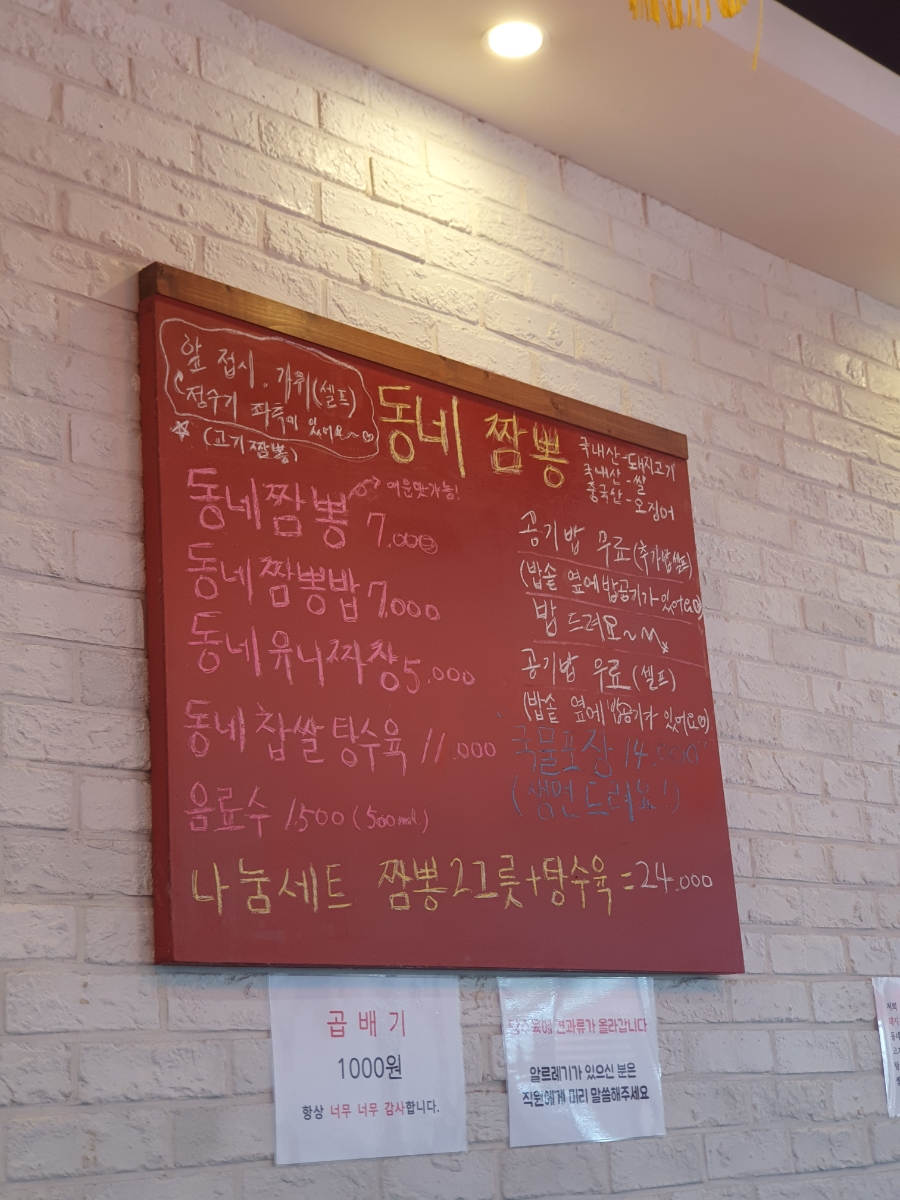 앞 접시.. 가위(셀프)
정수기 좌측에 있어요~♡
☆ (고기 짬뽕)
동네 짬뽕
국내산-돼지고기
국내산-쌀
중국산-오징어
동네짬뽕 매운맛가능! 7.000
동네짬뽕밥 7.000
동네유니짜장 5.000
동네찹쌀탕수육 11.000
음료수 1.500 (500ml)
공기밥 무료(추가밥셀프)
(밥솥 옆에 밥공기가 있어요♡)
밥 드려요~
공기밥 무료(셀프)
(밥솥 옆에 밥공기가 있어요♡)
국물포장 14.000
(생면드려요!)
나눔세트 짬뽕2그릇+탕수육=24.000
곱배기
1000원
항상 너무 너무 감사합니다.
탕수육에 견과류가 올라갑니다
알르레기가 있으신 분은
직원에게 미리 말씀해주세요